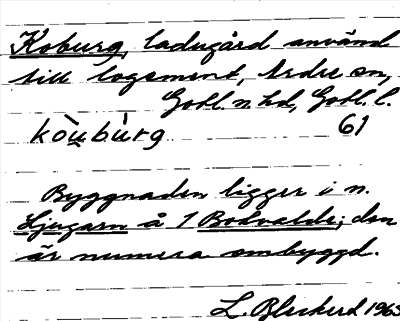 Koburg, ladugård använd
till logement, Ardre sn,
Gotl. n hd, Gotl. l.
kòu̯bùrg 61
Byggnaden ligger i n.
Ljugarn å 1 Bodvalde; den
är numera ombyggd.
L. Bleckerd 1963